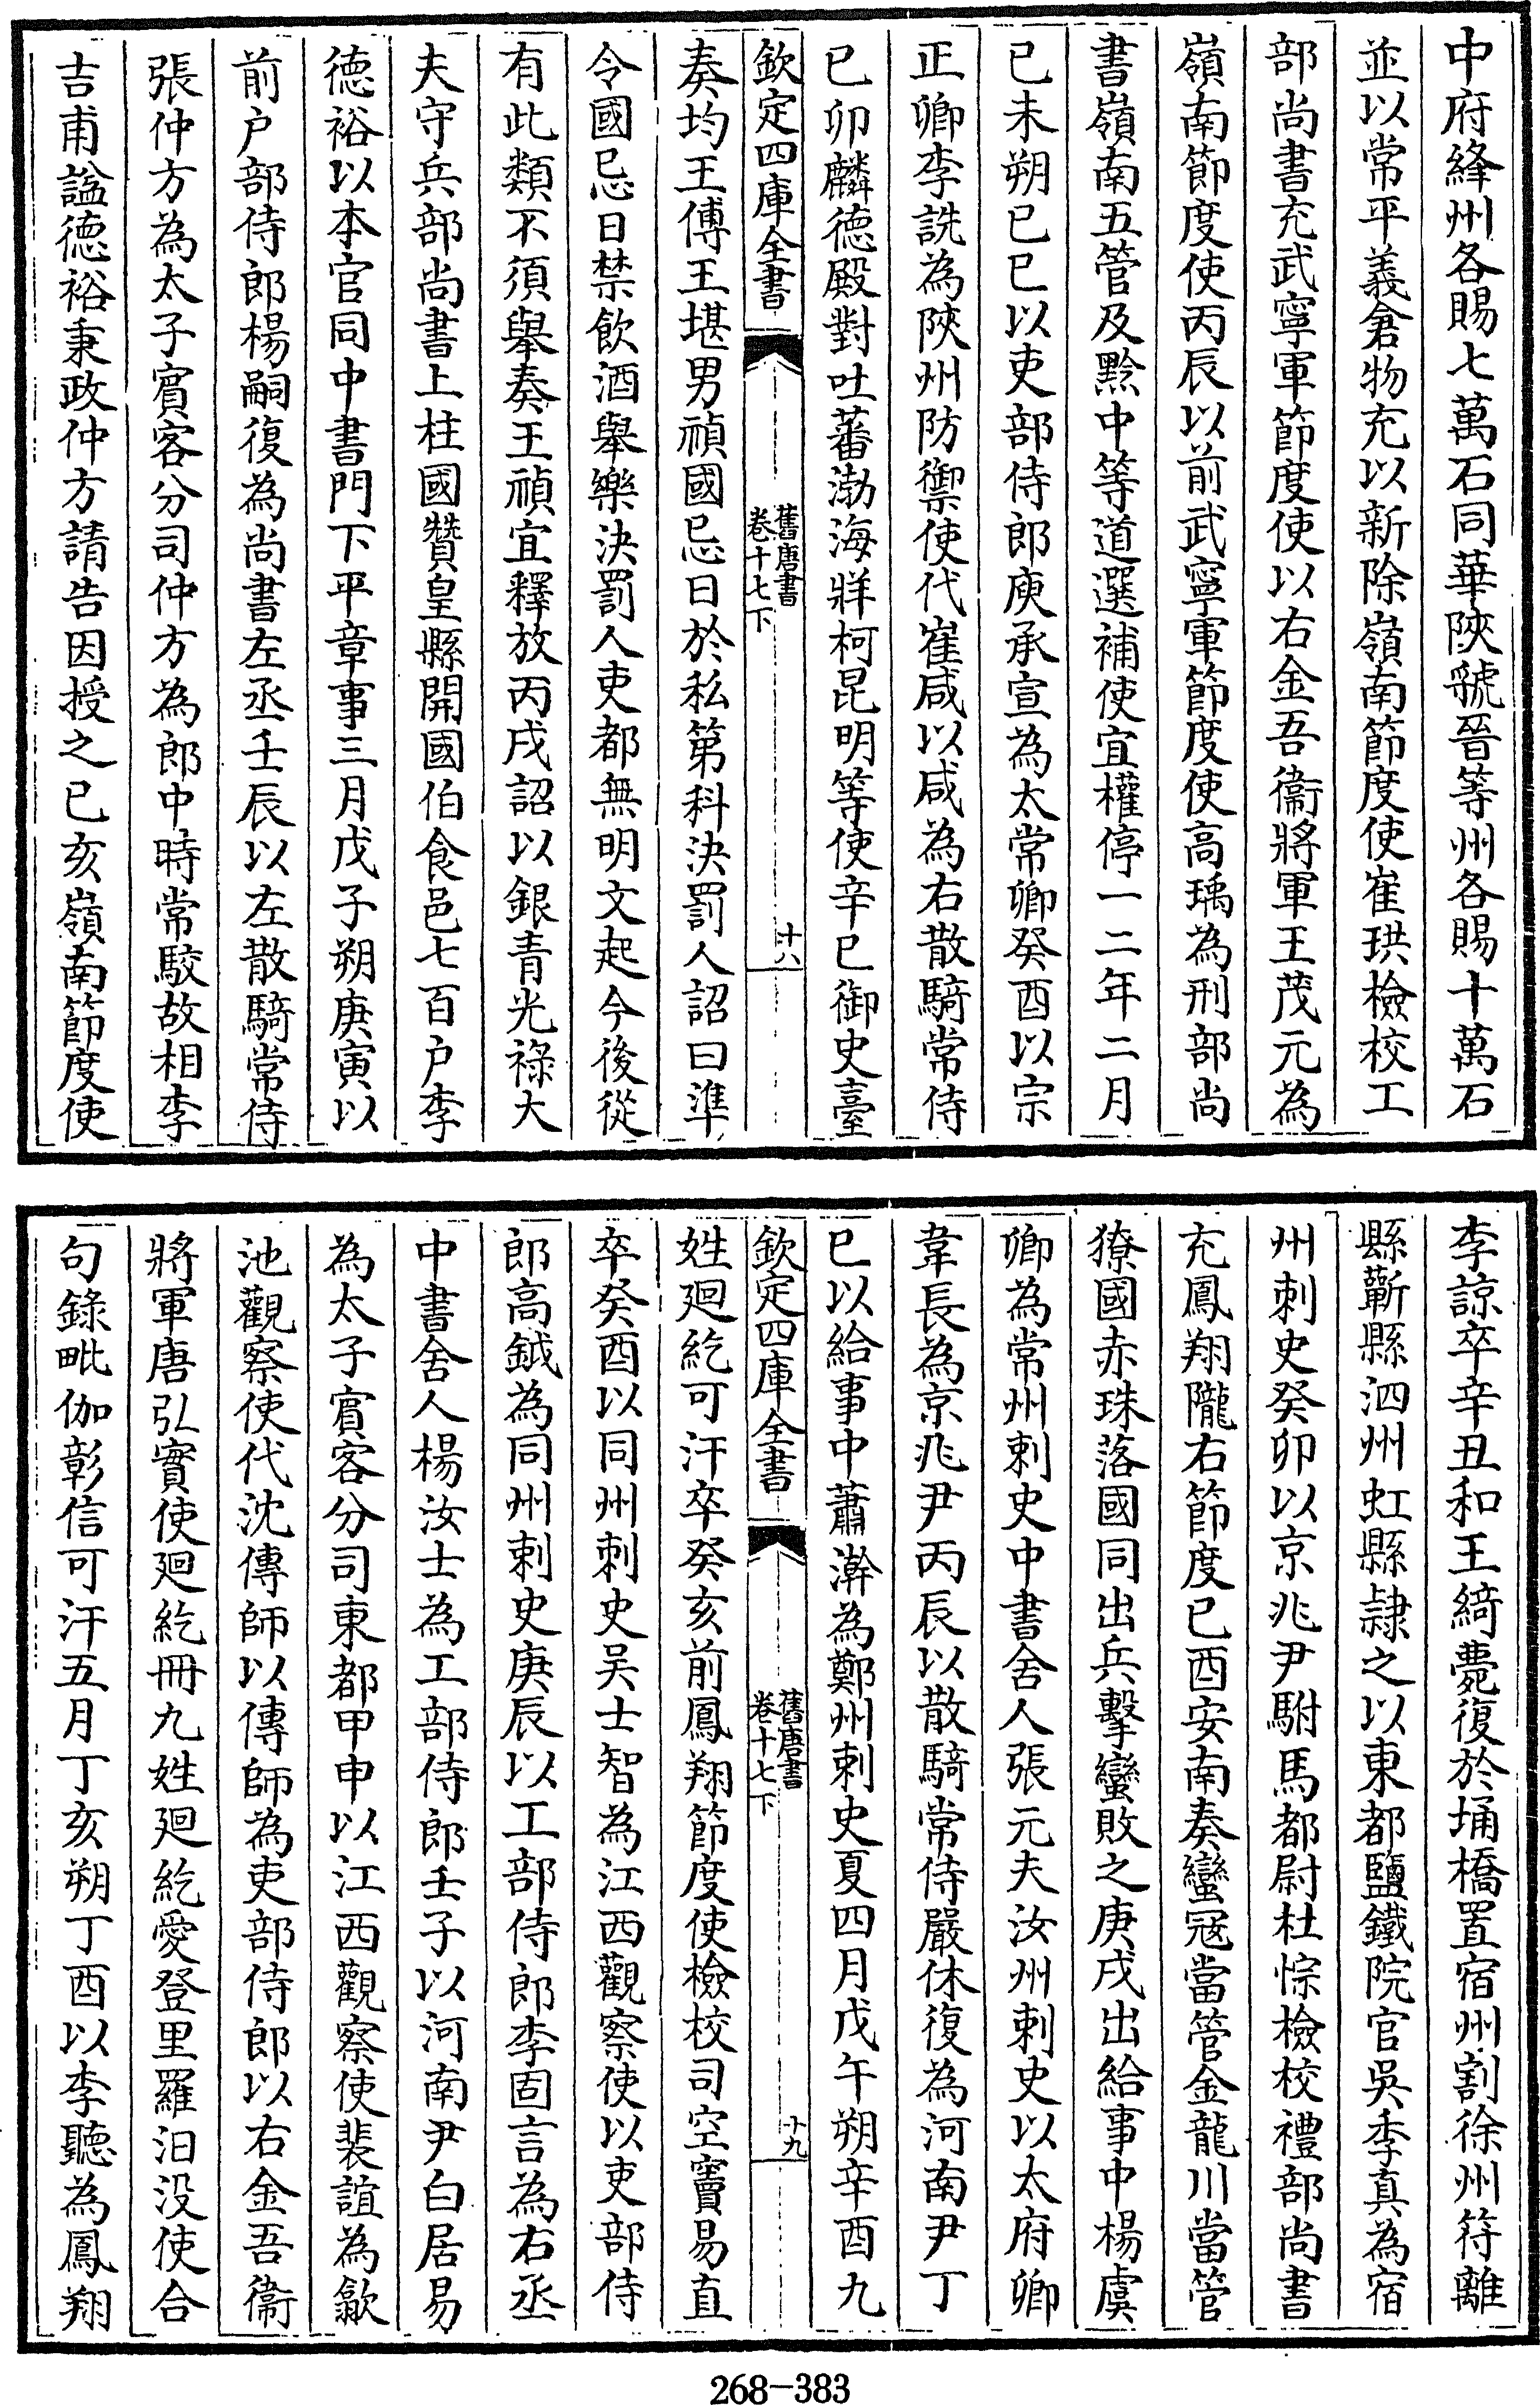 中府絳州各賜七萬石同華陝虢晉等州各賜十萬石
並以常平義倉物充以新除嶺南節度使崔珙檢校工
部尚書充武寧軍節度使以右金吾衞將軍王茂元為
嶺南節度使丙辰以前武寧軍節度使高瑀為刑部尚
書嶺南五管及黔中等道選補使宜權停一二年二月
已未朔已巳以吏部侍郎庾承宣為太常卿癸酉以宗
正卿李詵為陝州防禦使代崔咸以咸為右散騎常侍
已卯麟德殿對吐蕃渤海牂柯昆明等使辛巳御史臺
欽定四庫全書
舊唐書
卷十七下
十八
奏均王傅王堪男禎國忌日於私第科決罰人詔曰準
令國忌日禁飲酒舉樂決罰人吏都無明文起今後從
有此類不須舉奏王禎宜釋放丙戌詔以銀青光祿大
夫守兵部尚書上柱國贊皇縣開國伯食邑七百户李
德裕以本官同中書門下平章事三月戊子朔庚寅以
前户部侍郎楊嗣復為尚書左丞壬辰以左散騎常侍
張仲方為太子賓客分司仲方為郎中時常駮故相李
吉甫諡德裕秉政仲方請告因授之已亥嶺南節度使
李諒卒辛丑和王綺薨復於埇橋置宿州割徐州符離
縣蘄縣泗州虹縣隷之以東都鹽鐵院官吳季真為宿
州刺史癸卯以京兆尹駙馬都尉杜悰檢校禮部尚書
充鳳翔隴右節度已酉安南奏蠻寇當管金龍川當管
獠國赤珠落國同出兵擊蠻敗之庚戌出給事中楊虞
卿為常州刺史中書舍人張元夫汝州刺史以太府卿
韋長為京兆尹丙辰以散騎常侍嚴休復為河南尹丁
巳以給事中蕭澣為鄭州刺史夏四月戊午朔辛酉九
欽定四庫全書
舊唐書
卷十七下
十九
姓迴紇可汗卒癸亥前鳳翔節度使檢校司空竇易直
卒癸酉以同州刺史吳士智為江西觀察使以吏部侍
郎高鉞為同州刺史庚辰以工部侍郎李固言為右丞
中書舍人楊汝士為工部侍郎壬子以河南尹白居易
為太子賓客分司東都甲申以江西觀察使裴誼為歙
池觀察使代沈傳師以傳師為吏部侍郎以右金吾衞
將軍唐弘實使迴紇冊九姓迴紇愛登里羅汨没使合
句錄毗伽彰信可汗五月丁亥朔丁酉以李聽為鳳翔
268-383